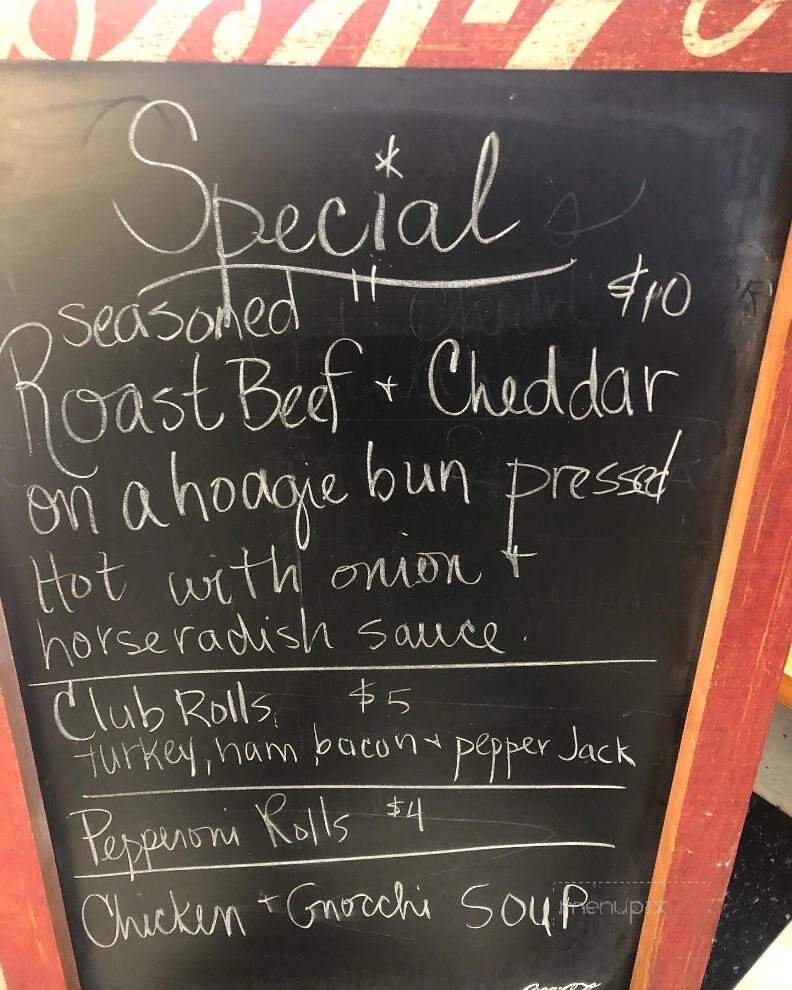 Special
seasoned $10
Roast Beef + Cheddar
on a hoagie bun pressed
Hot with onion +
horseradish sauce.
Club Rolls $5
turkey, ham bacon + pepper Jack
Pepperoni Rolls $4
Chicken + Gnocchi SOUP
menupix